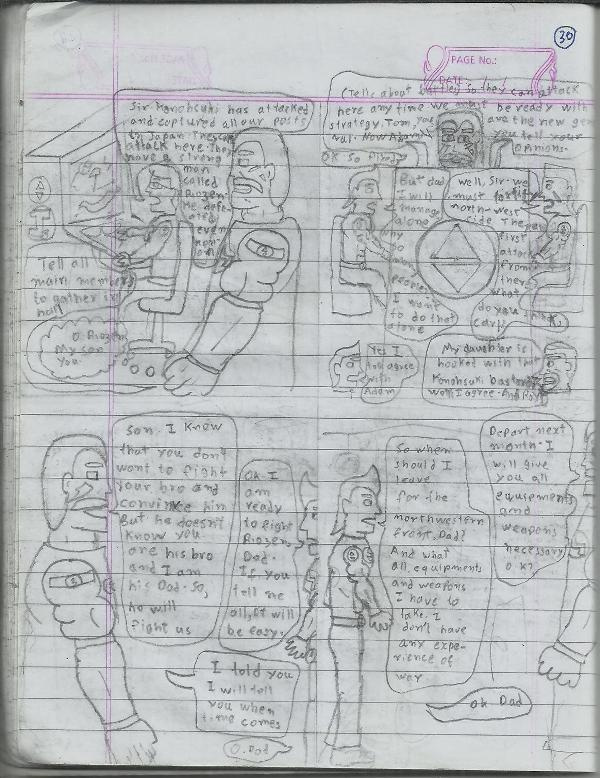 30
PAGE No.:
DATE:
Sir Konohsuki has attacked
and captured all our posts
in Japan. They can
attack here They
have a strong
man
called
Riozen.
He defe-
ated
even
Tell all
main members
to gather in
hall
O Riozen
My son
You
(Tells about battle) So they can attack
here any time we must be ready with
strategy. Tom, you are the new gen
ral. Now Adam you tell your
opinions.
OK So
But dad
I will
manage
alone
why
so
many
people
I want
to do that
alone
well, Sir we
must
north-west
side The
first
attack
from
there
what
do you think
Carl?
Yes I
too agree
with
Adam
My daughter is
hooked with that
Konohsuki bastard
well I agree
Son. I Know
that you don't
want to fight
your bro and
convince him
But he doesn't
Know you
are his bro
and I am
his Dad. So,
he will
fight us
Ok I
am
ready
to fight
Riozen,
Dad.
If you
tell me
all, It will
be easy.
I told you
I will tell
you when
time comes
O. Dad
So when
should I
leave
for the
northwestern
front, Dad?
And what
all, equipments
and weapons
I have to
take. I
don't have
any expe-
rience of
war
Depart next
month. I
will give
you all
equipments
and
weapons
necessary
OK?
Ok Dad